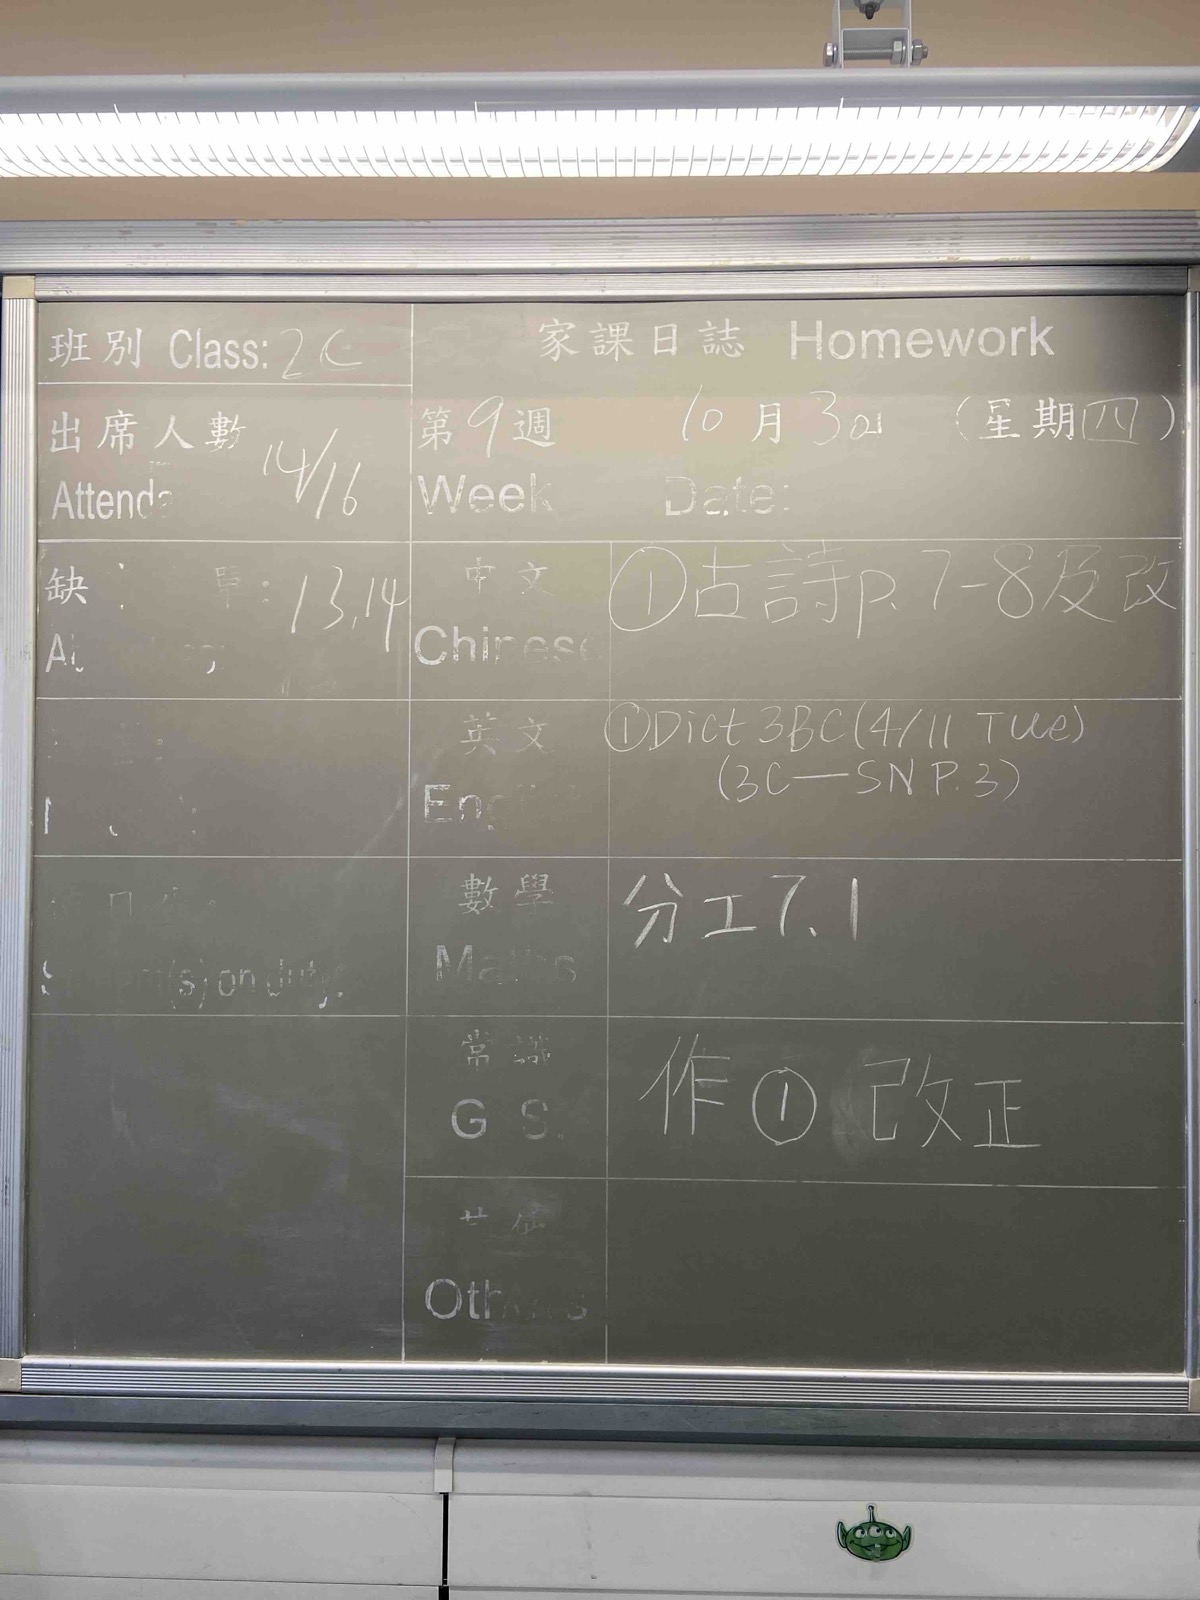 班別 Class: 2C
家課日誌 Homework
出席人數 14/16
第9週 10月3日 (星期四)
Week Date:
缺 13,14
中文 ①古詩p.7-8及改
英文 ①Dict 3BC(4/11 Tue)
(3C—SN P.3)
數學 分工7.1
Student(s) on duty:
常識 作① 改正
G S.